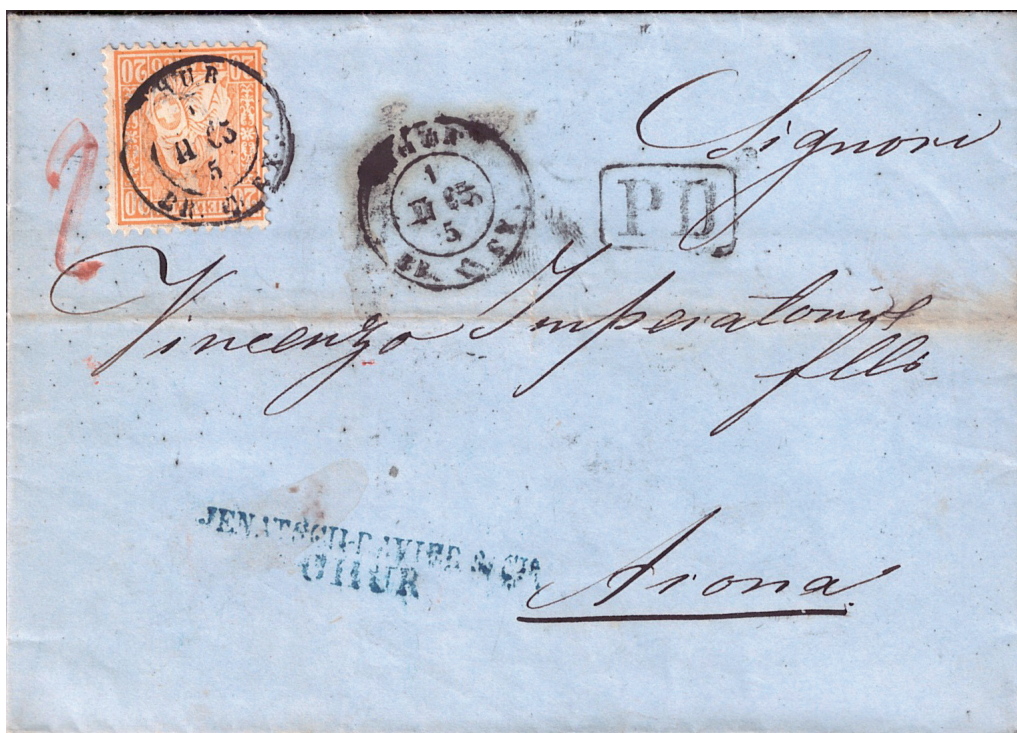 20 20
20 20
CHUR
1
II 65
5
BR. U. FX.
CHUR
1
II 65
5
PD
2
Signori
Vincenzo Imperatori e
flli.
JENATSCH-BAVIER & CIE
CHUR
Arona